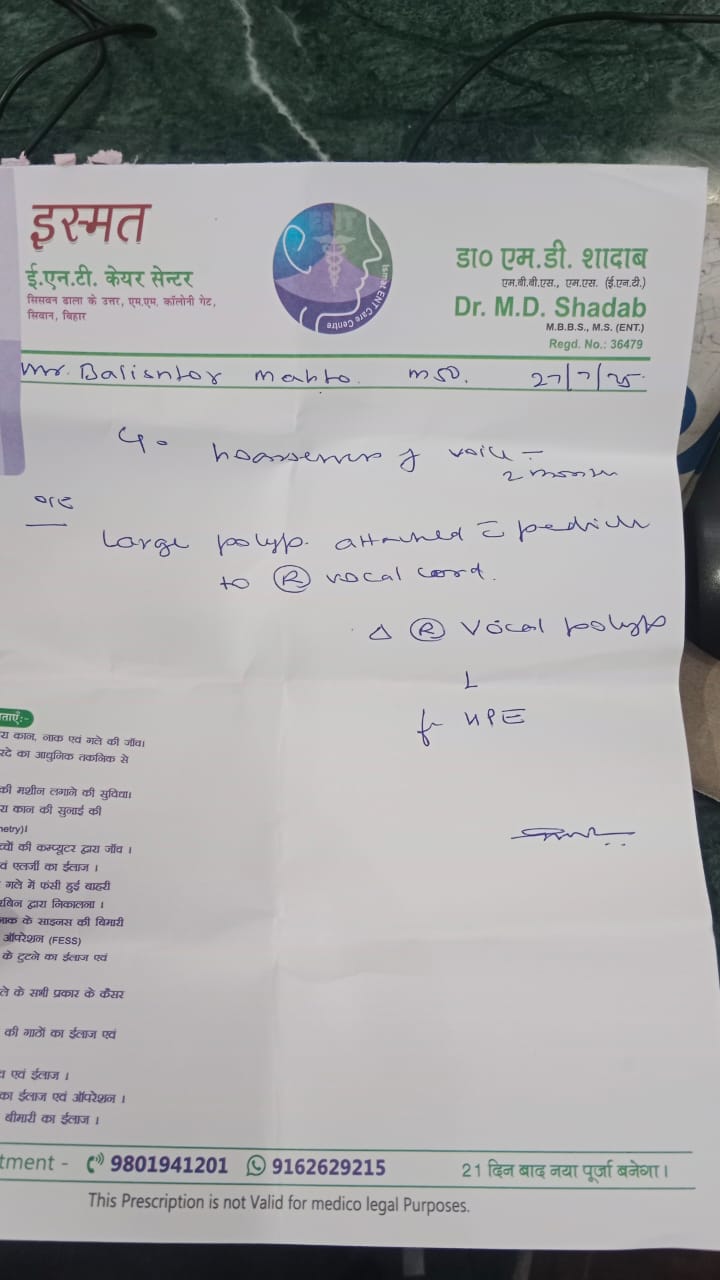 इस्मत
ई.एन.टी. केयर सेन्टर
सिसवन ढाला के उत्तर, एम.एम. कॉलोनी गेट,
सिवान, बिहार
ENT
Ismat ENT Care Centre
डा० एम.डी. शादाब
एम.बी.बी.एस., एम.एस. (ई.एन.टी.)
Dr. M.D. Shadab
M.B.B.S., M.S. (ENT.)
Regd. No.: 36479
Mr. Balisntor Mahto. M50. 27/7/25.
hoarseness of voice -
2 months
O/E
Large polyp. attached c̄ pedicle
to Ⓡ vocal cord.
Δ Ⓡ Vocal polyp
for HPE
ताएँ:-
रा कान, नाक एवं गले की जाँच।
रदे का आधुनिक तकनिक से
की मशीन लगाने की सुविधा।
रा कान की सुनाई की
metry)।
च्चों की कम्प्यूटर द्वारा जाँच।
वं एलर्जी का ईलाज।
गले में फंसी हुई बाहरी
रबिन द्वारा निकालना।
नाक के साइनस की बिमारी
ऑपरेशन (FESS)
के टुटने का ईलाज एवं
ले के सभी प्रकार के कैंसर
की गाठों का ईलाज एवं
व एवं ईलाज।
का ईलाज एवं ऑपरेशन।
बीमारी का ईलाज।
tment - 9801941201 9162629215 21 दिन बाद नया पूर्जा बनेगा।
This Prescription is not Valid for medico legal Purposes.